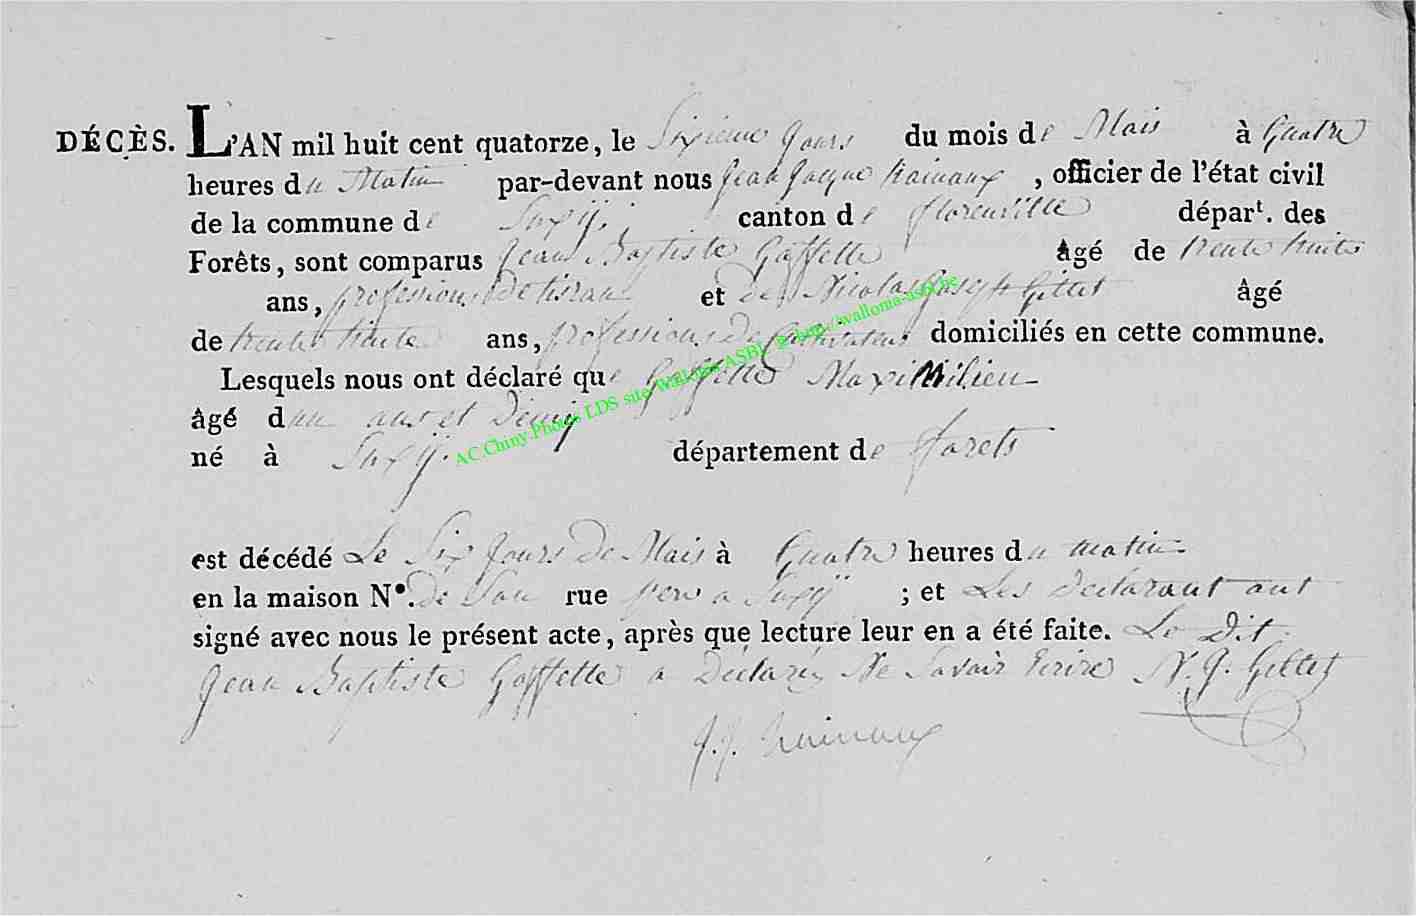 DÉCÈS. L'AN mil huit cent quatorze, le Sixieme Jours du mois de Mais à Quatre
heures du Matin par-devant nous Jean Jacque Hainaux, officier de l'état civil
de la commune de Suxÿ. canton de florenville départ. des
Forêts, sont comparus Jean Baptiste Gaffette âgé de trente huite
ans, professions De tisran et de Nicolas Joseph Gillet âgé
de trente huite ans, professions De Cultivateurs domiciliés en cette commune.
Lesquels nous ont déclaré que Gaffette Maximilien
âgé dun ans et Demÿ
né à Suxÿ. département de forets
AC Chiny Photos LDS site Wallonia ASBL @ http://wallonia-asbl.be
est décédé Le Six Jours De Mais à Quatre heures du matin
en la maison N°. De Son rue pere a Suxÿ ; et Les Declarant ont
signé avec nous le présent acte, après que lecture leur en a été faite. Le Dit
Jean Baptiste Gaffette a Declarez Ne Savoir Ecrire N. J. Gillet
J. J. Hainaux